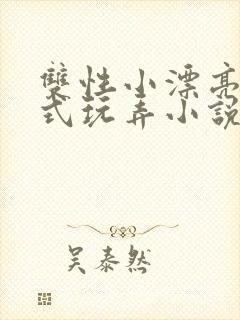 雙性小漂亮
式玩弄小說
吴泰然